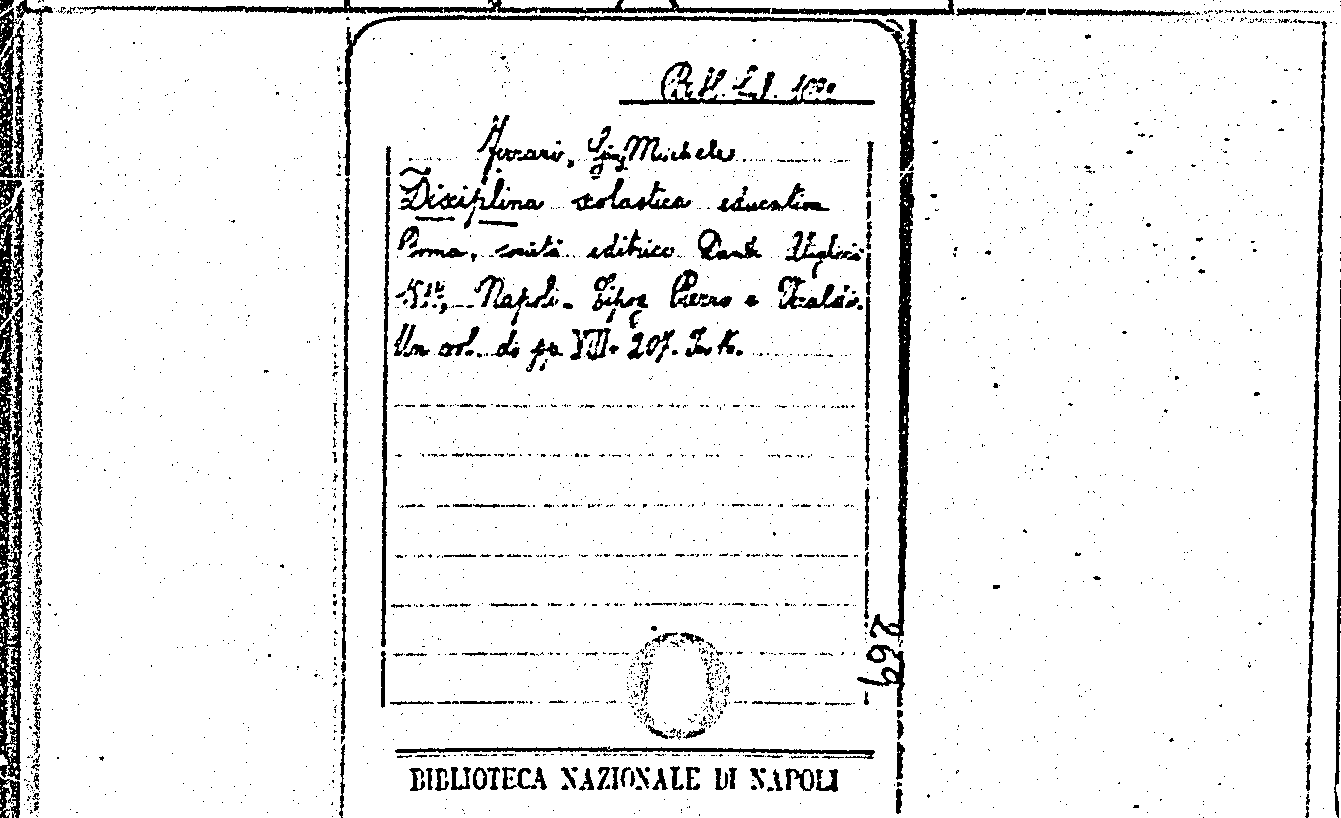 Ferrari, Gius. Michele
Disciplina scolastica educativa
Roma, società editrice Dante Alighieri
Napoli. Tipog. Pierro e Veraldi.
Un vol. di pp VIII-207. In 16.
269
BIBLIOTECA NAZIONALE DI NAPOLI